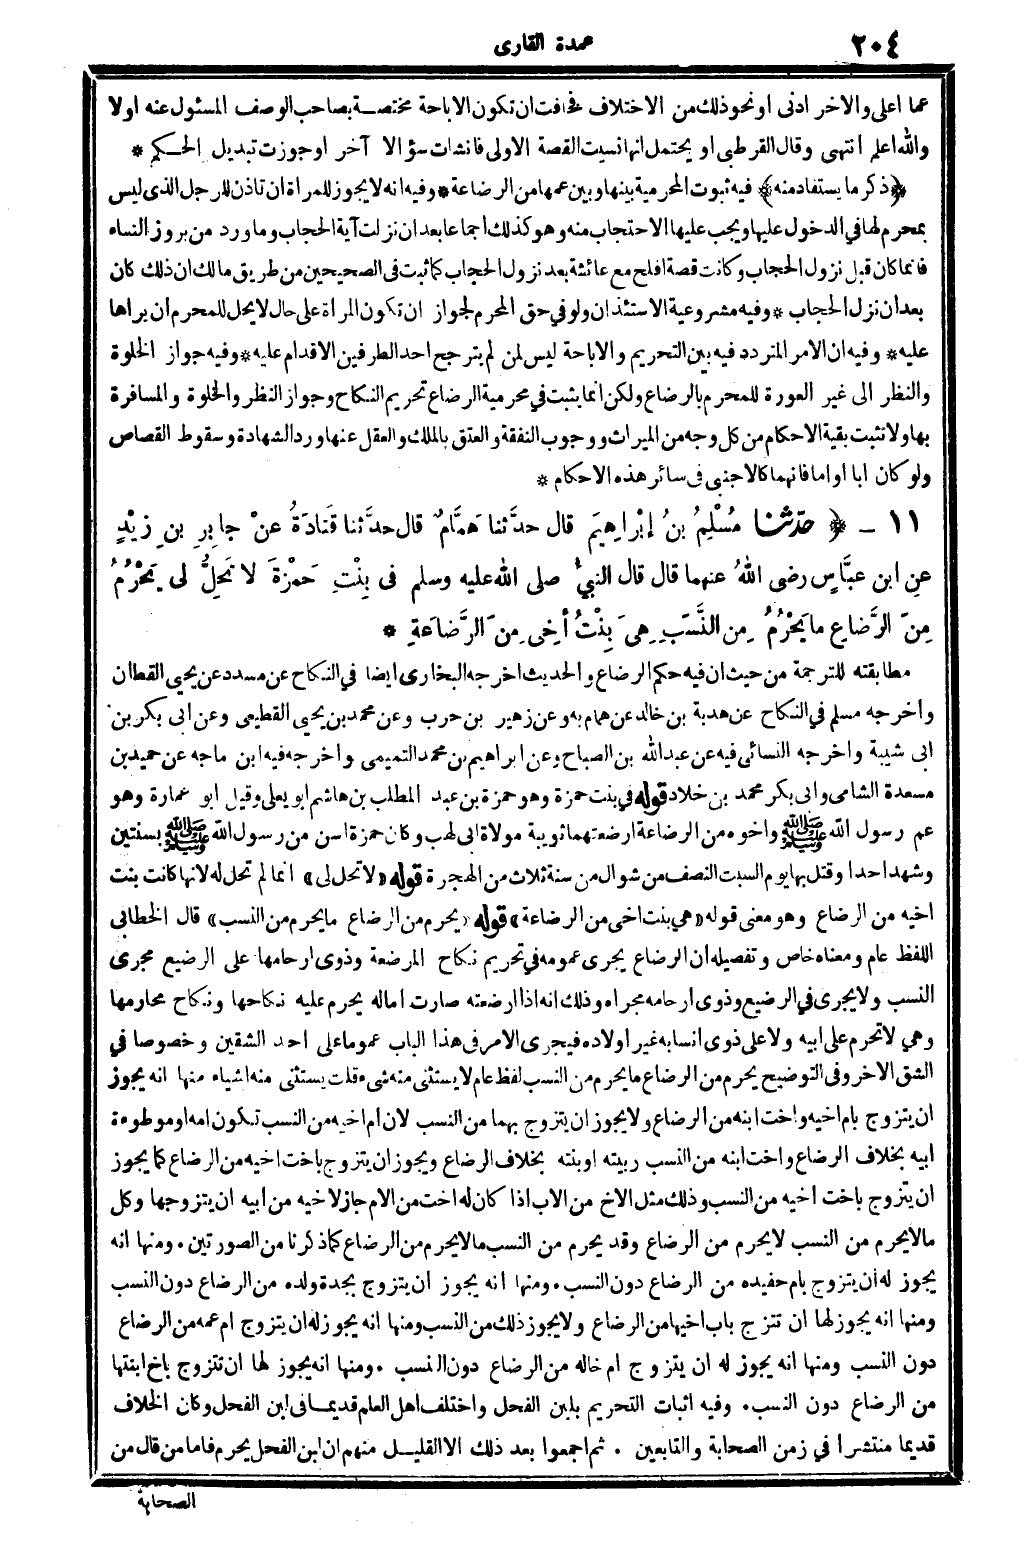 ٢٠٤
عمدة القارى
عما اعلى والاخر ادنى اونحوذلك من الاختلاف فخافت ان تكون الاباحة مختصة بصاحب الوصف المسئول عنه اولا
والله اعلم انتهى وقال القرطبى او يحتمل انها نسيت القصة الاولى فانشات سؤالا آخر اوجوزت تبديل الحكم *
﴿ذكر ما يستفاد منه﴾ فيه ثبوت المحرمية بينها وبين عمها من الرضاعة * وفيه انه لا يجوز للمراة ان تاذن للرجل الذى ليس
بمحرم لها في الدخول عليها ويجب عليها الاحتجاب منه وهو كذلك اجماعا بعد ان نزلت آية الحجاب وما ورد من بروز النساء
فانما كان قبل نزول الحجاب وكانت قصة افلح مع عائشة بعد نزول الحجاب كما ثبت فى الصحيحين من طريق مالك ان ذلك كان
بعد ان نزل الحجاب * وفيه مشروعية الاستئذان ولو في حق المحرم لجواز ان تكون المراة على حال لا يحل للمحرم ان يراها
عليه * وفيه ان الامر المتردد فيه بين التحريم والاباحة ليس لمن لم يترجح احد الطرفين الاقدام عليه * وفيه جواز الخلوة
والنظر الى غير العورة للمحرم بالرضاع ولكن انما يثبت في محرمية الرضاع تحريم النكاح وجواز النظر والخلوة والمسافرة
بها ولا تثبت بقية الاحكام من كل وجه من الميراث ووجوب النفقة والعتق بالملك والعقل عنها ورد الشهادة وسقوط القصاص
ولو كان ابا او اما فانهما كالاجنبى فى سائر هذه الاحكام *
١١ – ﴿ حَدَّثَنَا مُسْلِمُ بنُ إبْرَاهِيمَ قال حدَّثنا هَمَّامٌ قال حدَّثنا قَتَادَةُ عنْ جابِرِ بنِ زَيْدٍ
عنِ ابنِ عبَّاسٍ رضى اللهُ عنهما قال قال النبيُّ صلى الله عليه وسلم فى بِنْتِ حَمْزَةَ لا تَحِلُّ لِى يَحْرُمُ
مِنَ الرَّضَاعِ ما يَحْرُمُ مِنَ النَّسَبِ هِىَ بِنْتُ أخِى مِنَ الرَّضَاعَةِ *
مطابقته للترجمة من حيث ان فيه حكم الرضاع والحديث اخرجه البخارى ايضا في النكاح عن مسدد عن يحيى القطان
واخرجه مسلم في النكاح عن هدبة بن خالد عن همام به وعن زهير بن حرب وعن محمد بن يحيى القطيعى وعن ابى بكر بن
ابى شيبة واخرجه النسائى فيه عن عبد الله بن الصباح وعن ابراهيم بن محمد التميمى واخرجه فيه ابن ماجه عن حميد بن
مسعدة الشامى وابى بكر محمد بن خلاد قوله في بنت حمزة وهو حمزة بن عبد المطلب بن هاشم ابو يعلى وقيل ابو عمارة وهو
عم رسول الله ﷺ واخوه من الرضاعة ارضعتهما ثويبة مولاة ابى لهب وكان حمزة اسن من رسول الله ﷺ بسنتين
وشهد احدا وقتل بها يوم السبت النصف من شوال من سنة ثلاث من الهجرة قوله «لا تحل لى» انما لم تحل له لانها كانت بنت
اخيه من الرضاع وهو معنى قوله «هي بنت اخى من الرضاعة» قوله «يحرم من الرضاع مايحرم من النسب» قال الخطابى
اللفظ عام ومعناه خاص وتفصيله ان الرضاع يجرى عمومه في تحريم نكاح المرضعة وذوى ارحامها على الرضيع مجرى
النسب ولا يجرى في الرضيع وذوى ارحامه مجراه وذلك انه اذا ارضعته صارت اما له يحرم عليه نكاحها ونكاح محارمها
وهي لا تحرم على ابيه ولا على ذوى انسابه غير اولاده فيجرى الامر فى هذا الباب عموما على احد الشقين وخصوصا في
الشق الاخر وفى التوضيح يحرم من الرضاع مايحرم من النسب لفظ عام لا يستثنى منه شىء قلت يستثنى منه اشياء منها انه يجوز
ان يتزوج بام اخيه واخت ابنه من الرضاع ولا يجوز ان يتزوج بهما من النسب لان ام اخيه من النسب تكون امه او موطوءة
ابيه بخلاف الرضاع واخت ابنه من النسب ربيبته او بنته بخلاف الرضاع ويجوز ان يتزوج باخت اخيه من الرضاع كما يجوز
ان يتزوج باخت اخيه من النسب وذلك مثل الاخ من الاب اذا كان له اخت من الام جاز لاخيه من أبيه ان يتزوجها وكل
مالا يحرم من النسب لا يحرم من الرضاع وقد يحرم من النسب مالا يحرم من الرضاع كما ذكرنا من الصورتين . ومنها انه
يجوز له أن يتزوج بام حفيده من الرضاع دون النسب . ومنها انه يجوز ان يتزوج بجدة ولده من الرضاع دون النسب
ومنها انه يجوز لها ان تتزج باب اخيها من الرضاع ولا يجوز ذلك من النسب ومنها انه يجوز له ان يتزوج ام عمه من الرضاع
دون النسب ومنها انه يجوز له ان يتزوج ام خاله من الرضاع دون النسب . ومنها انه يجوز لها ان تتزوج باخ ابنتها
من الرضاع دون النسب . وفيه اثبات التحريم بلبن الفحل واختلف اهل العلم قديما فى لبن الفحل وكان الخلاف
قديما منتشرا في زمن الصحابة والتابعين . ثم اجمعوا بعد ذلك الا القليل منهم ان لبن الفحل يحرم فاما من قال من
الصحابة